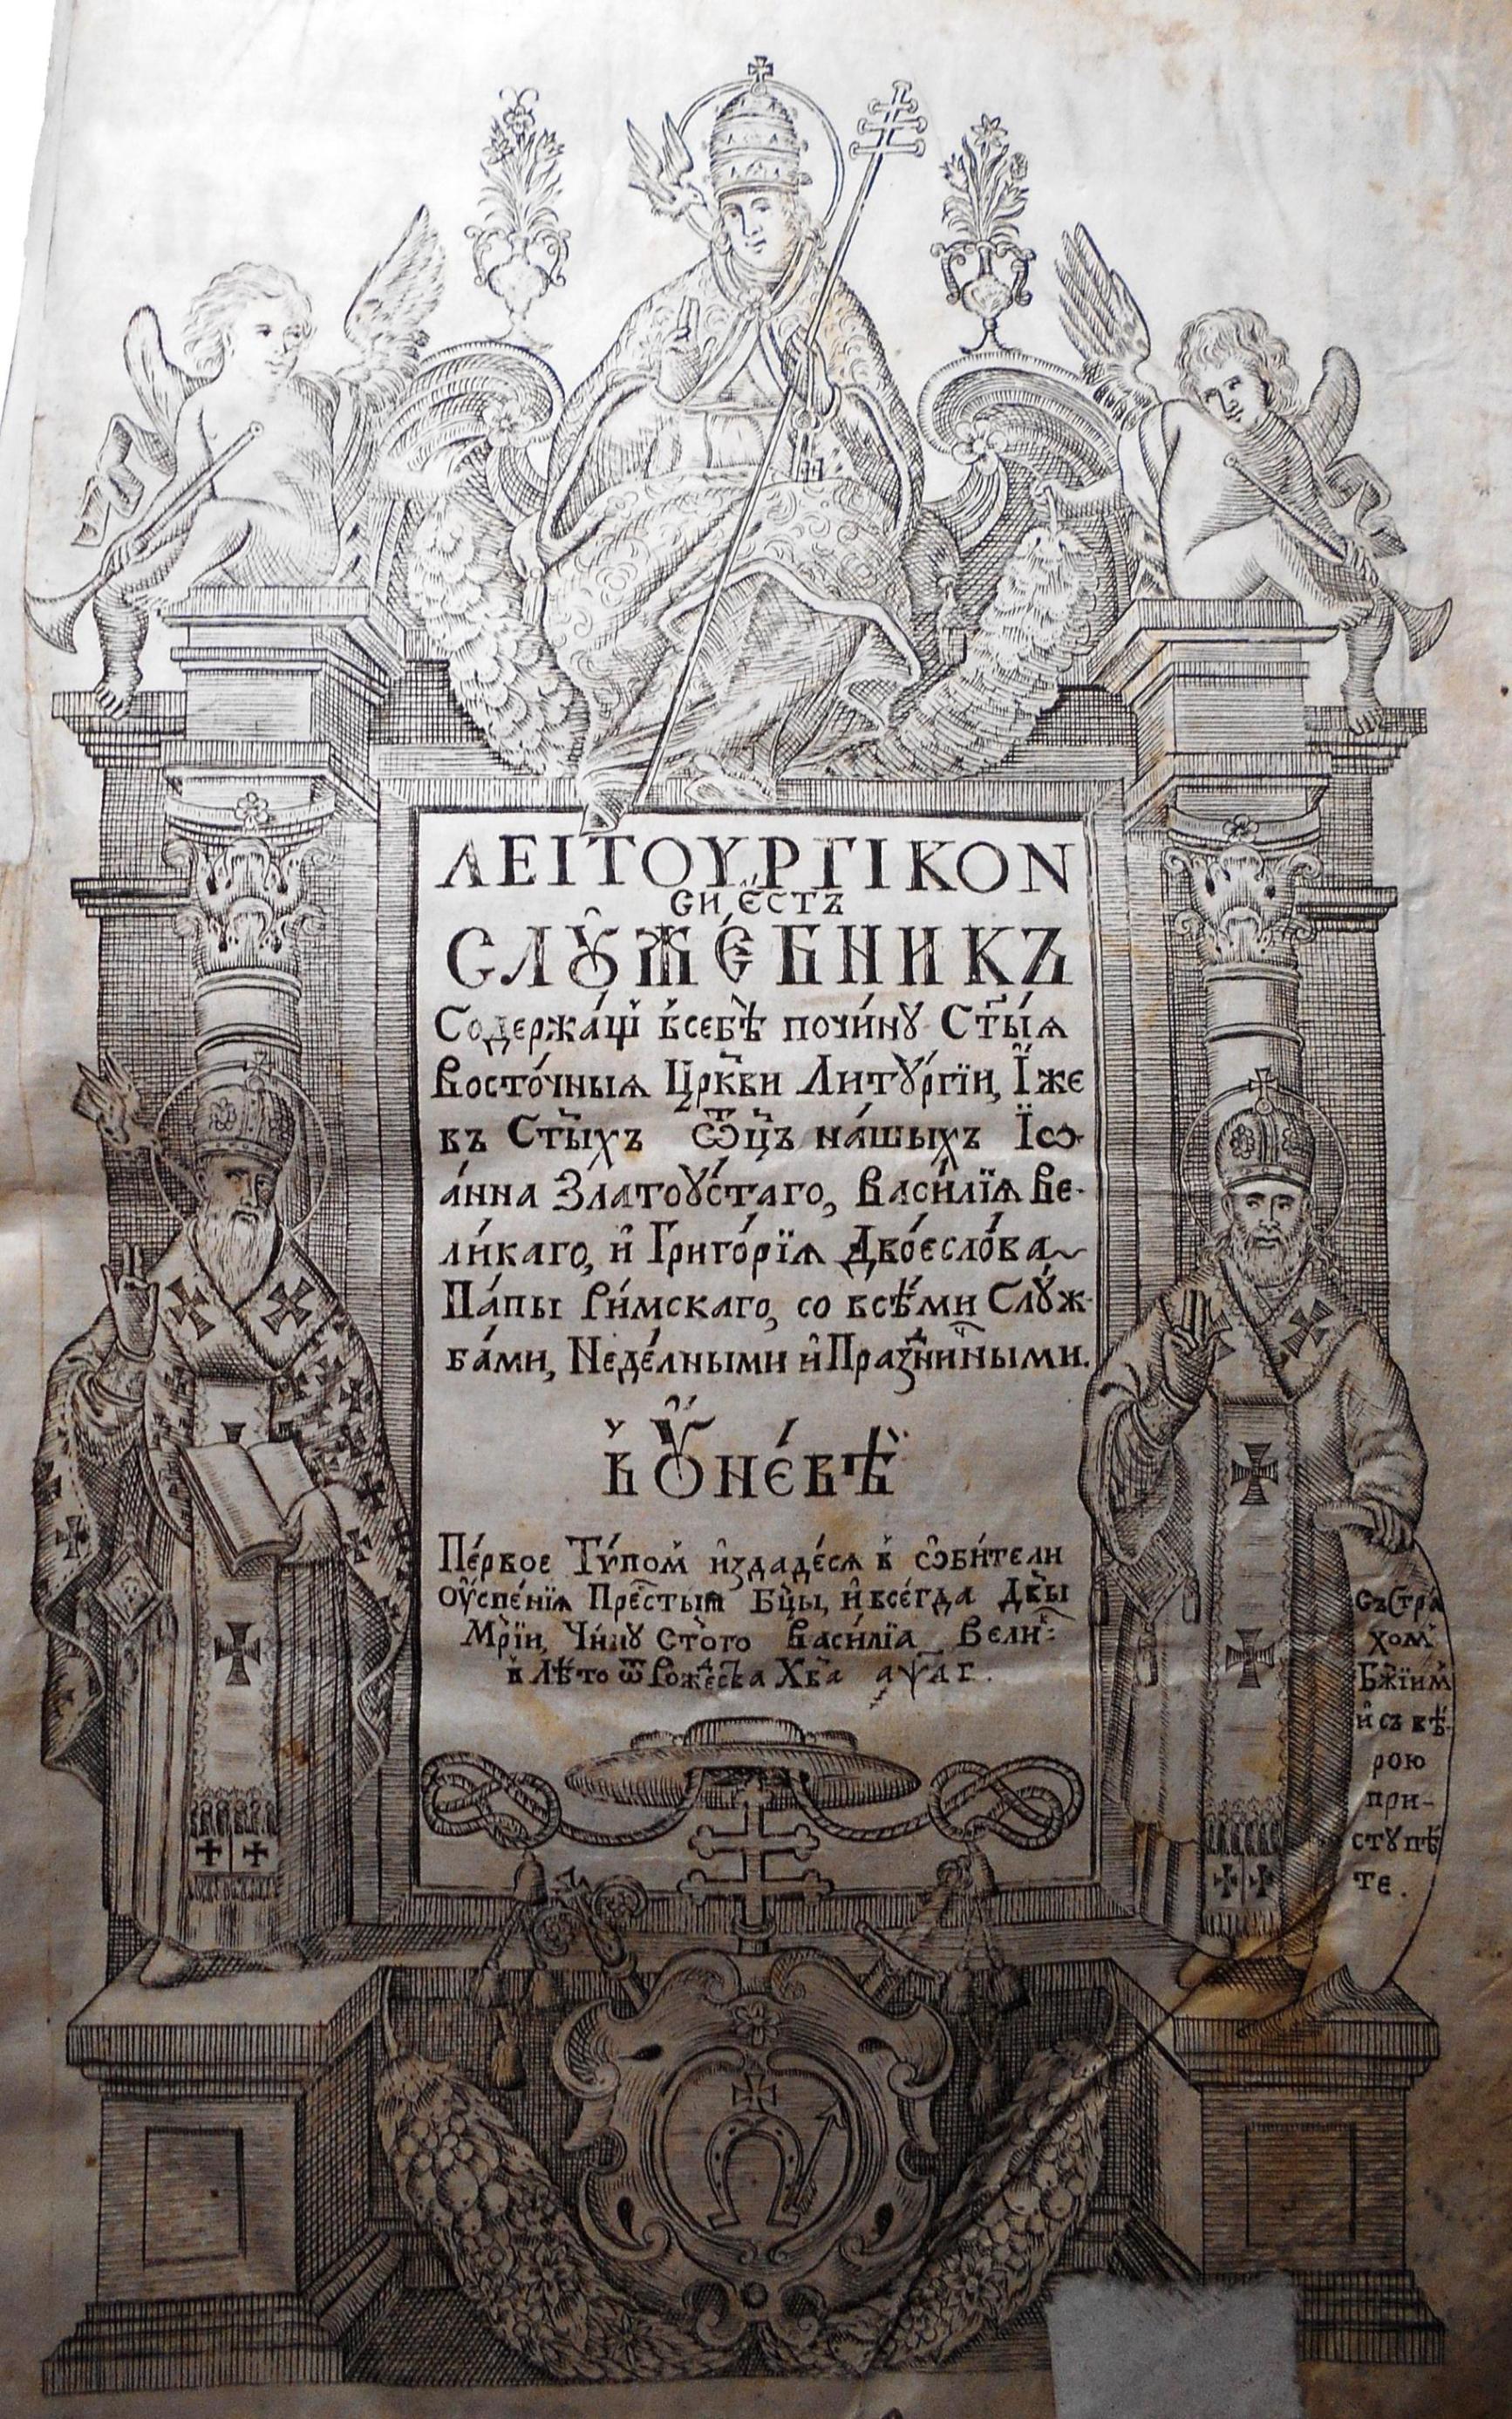 ΛΕΙΤΟΥΡΓΙΚΟΝ
СИ Є҆СТЪ
СЛꙊ̑ЖЄ́БНИКЪ
Содержа́щꙇ҆ в̾себѣ̀ почи́нꙋ Ст҃ы́ѧ
Восто́чныѧ Цр҃кви Литꙋргі́и, І҆̀же
въ Ст҃ы́хъ Ѿц҃ъ на́шыхъ Їѡ-
а́нна Златоꙋ́стаго, Васи́лїѧ Ве-
ли́каго, и҆ Григо́рїѧ Двоесло́ва
Па́пы Ри́мскаго, со всѣ́ми Слꙋ́ж-
ба́ми, Неде́лными и҆ Праꙁничными.
в̾ Ꙋ҆не́вѣ
Пе́рвое Тѵ́пом̾ и҆здаде́сѧ в̾ ѡ҆би́тели
оу҆спе́нїѧ Прест҃ы́ѧ Бц҃ы, и҆ всегда̀ Дв҃ы
Мр҃їи, Чи́нꙋ Ст҃о́го Васи́лїа Вели:
в̾ Лѣ́то ѿ Рожества Хв҃а аѱл҃г.
Съ Стра́-
хом̾
Бж҃їим̾
и҆ съ вѣ́-
рою
при-
стꙋпѣ́
те.